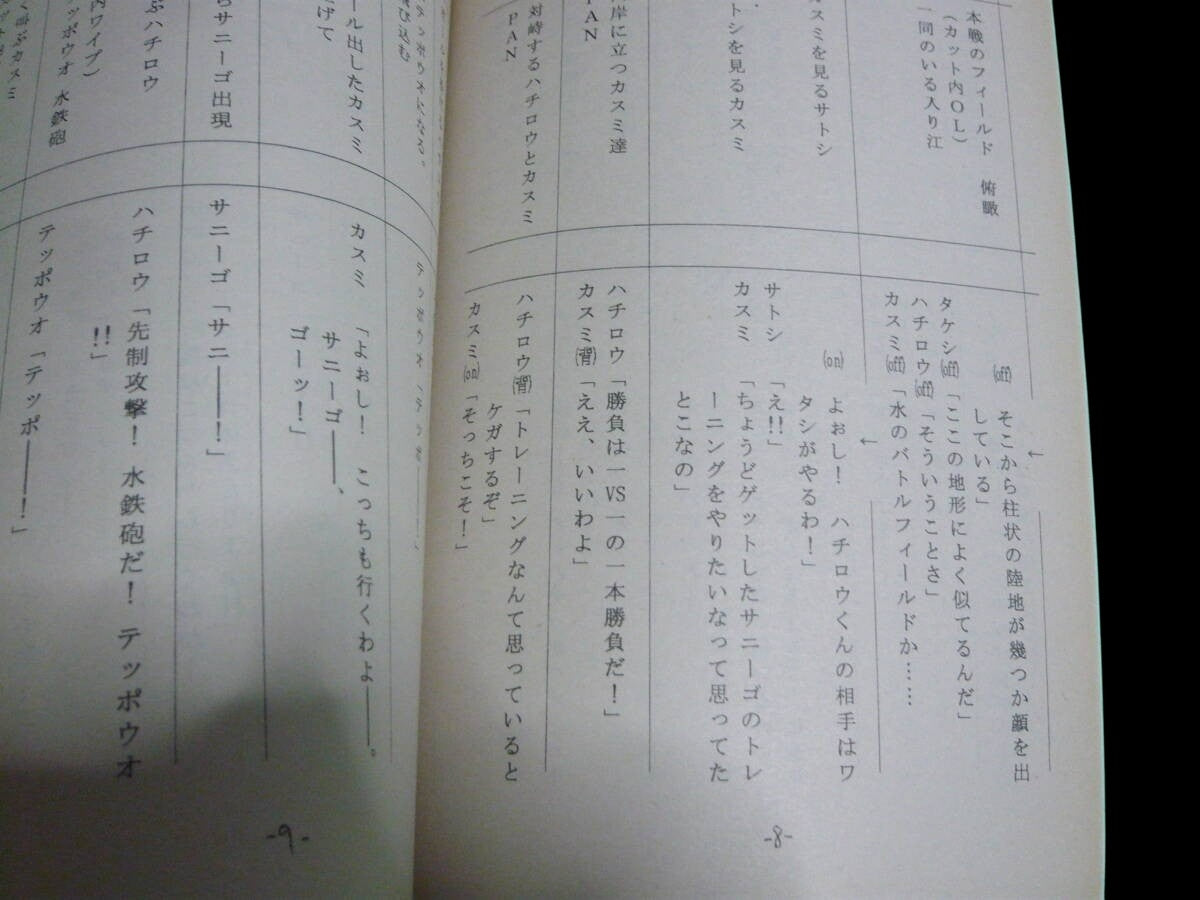 本戦のフィールド 俯瞰
(カット内OL)
一同のいる入り江
カスミを見るサトシ
トシを見るカスミ
岸に立つカスミ達
PAN
対峙するハチロウとカスミ
PAN
←
(off) そこから柱状の陸地が幾つか顔を出
している」
タケシ(off)「ここの地形によく似てるんだ」
ハチロウ(off)「そういうことさ」
カスミ(off)「水のバトルフィールドか……
←
(on) よぉし! ハチロウくんの相手はワ
タシがやるわ!」
サトシ 「え!!」
カスミ 「ちょうどゲットしたサニーゴのトレ
ーニングをやりたいなって思ってた
とこなの」
ハチロウ「勝負は一VS一の一本勝負だ!」
カスミ(背)「ええ、いいわよ」
ハチロウ(背)「トレーニングなんて思っていると
ケガするぞ」
カスミ(on)「そっちこそ!」
-8-
になる。
び込む
ール出したカスミ
げて
らサニーゴ出現
ぶハチロウ
内ワイプ)
ッポウオ 水鉄砲
く叫ぶカスミ
カスミ 「よぉし! こっちも行くわよ――。
サニーゴ――、
ゴーッ!」
サニーゴ「サニ――!」
ハチロウ「先制攻撃! 水鉄砲だ! テッポウオ
!!」
テッポウオ「テッポ――!」
-9-